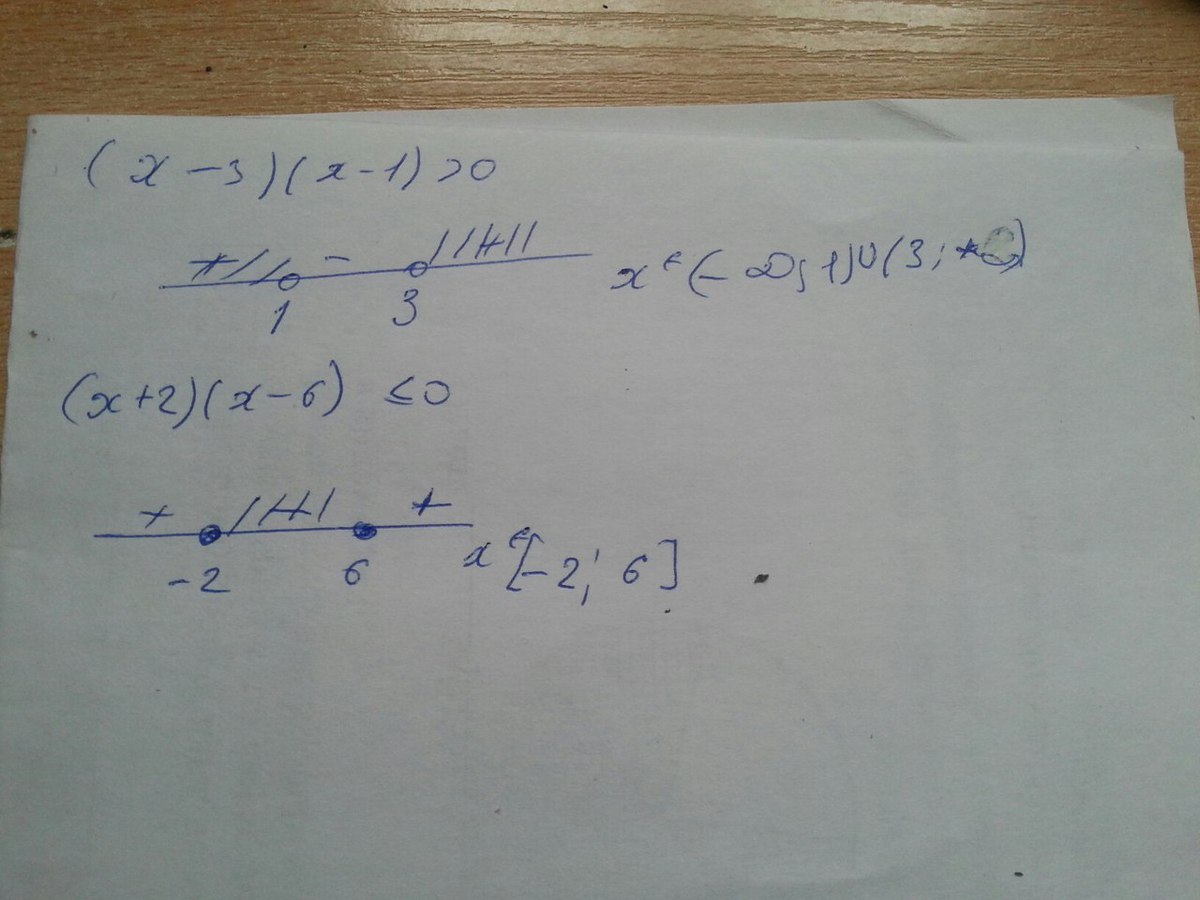 (x-3)(x-1)>0
+ - +
1 3 x∈(-∞;1)∪(3;+∞)
(x+2)(x-6) ≤0
+ - +
-2 6 x∈[-2; 6]